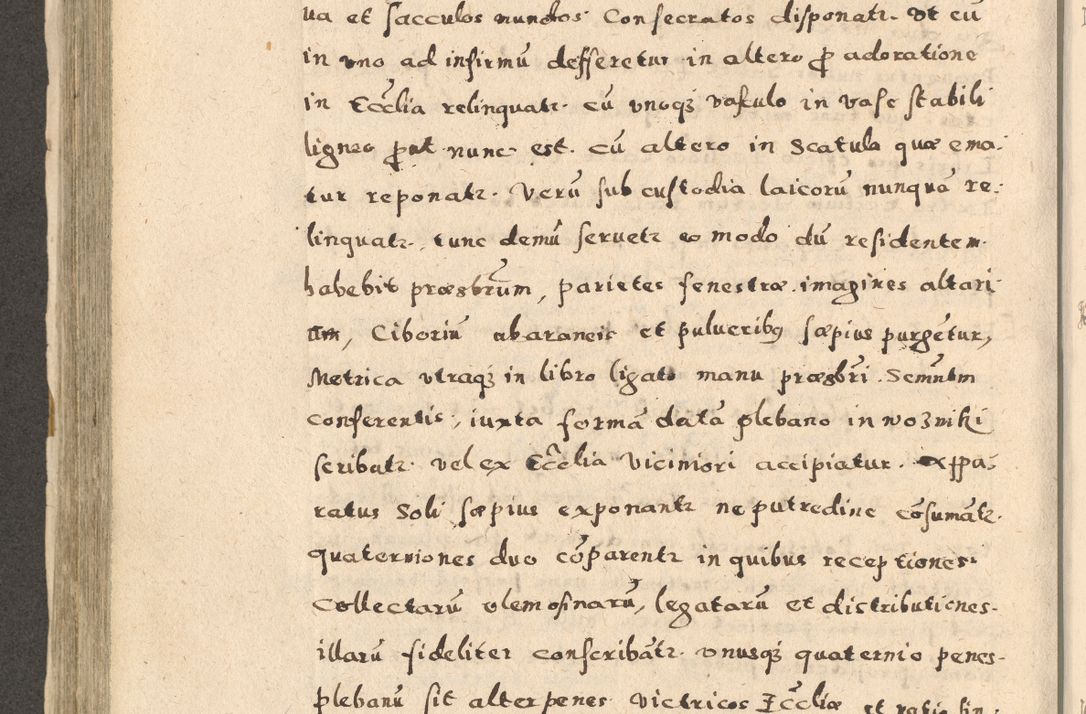 ua et sacculos mundos Consecratos disponatr. Vt cū
in vno ad infirmū defferetur in altero ꝓ adoratione
in Ecc̄lia relinquatr. cū vnoqʒ vasculo in vase stabili
ligneo ꝓut nunc est. cū altero in Scatula quæ ema-
tur reponatr. Verū sub custodia laicorū nunquā re-
linquatr, tunc demū seruetr eo modo dū residentem
habebit præsbr̄um, parietes fenestræ imagines altari
um, Ciboriū ab araneis et puluerib9 sæpius purgētur,
Metrica vtraqʒ in libro ligato manu præsbr̄i Semm̄tm
conferentis, iuxta formā datā plebano in woʒniki
scribatr. vel ex Ecc̄lia Viciniori accipiatur. Appa-
ratus Soli sæpius exponantr ne putredine cōsumātr.
quaterniones duo cōparentr in quibus receptiones
Collectarū elemosinarū, legatarū et distributiones
illarū fideliter conscribātr. vnusqʒ quaternio penes
plebanū sit alter penes victricos Ecc̄liæ et ratio sin-